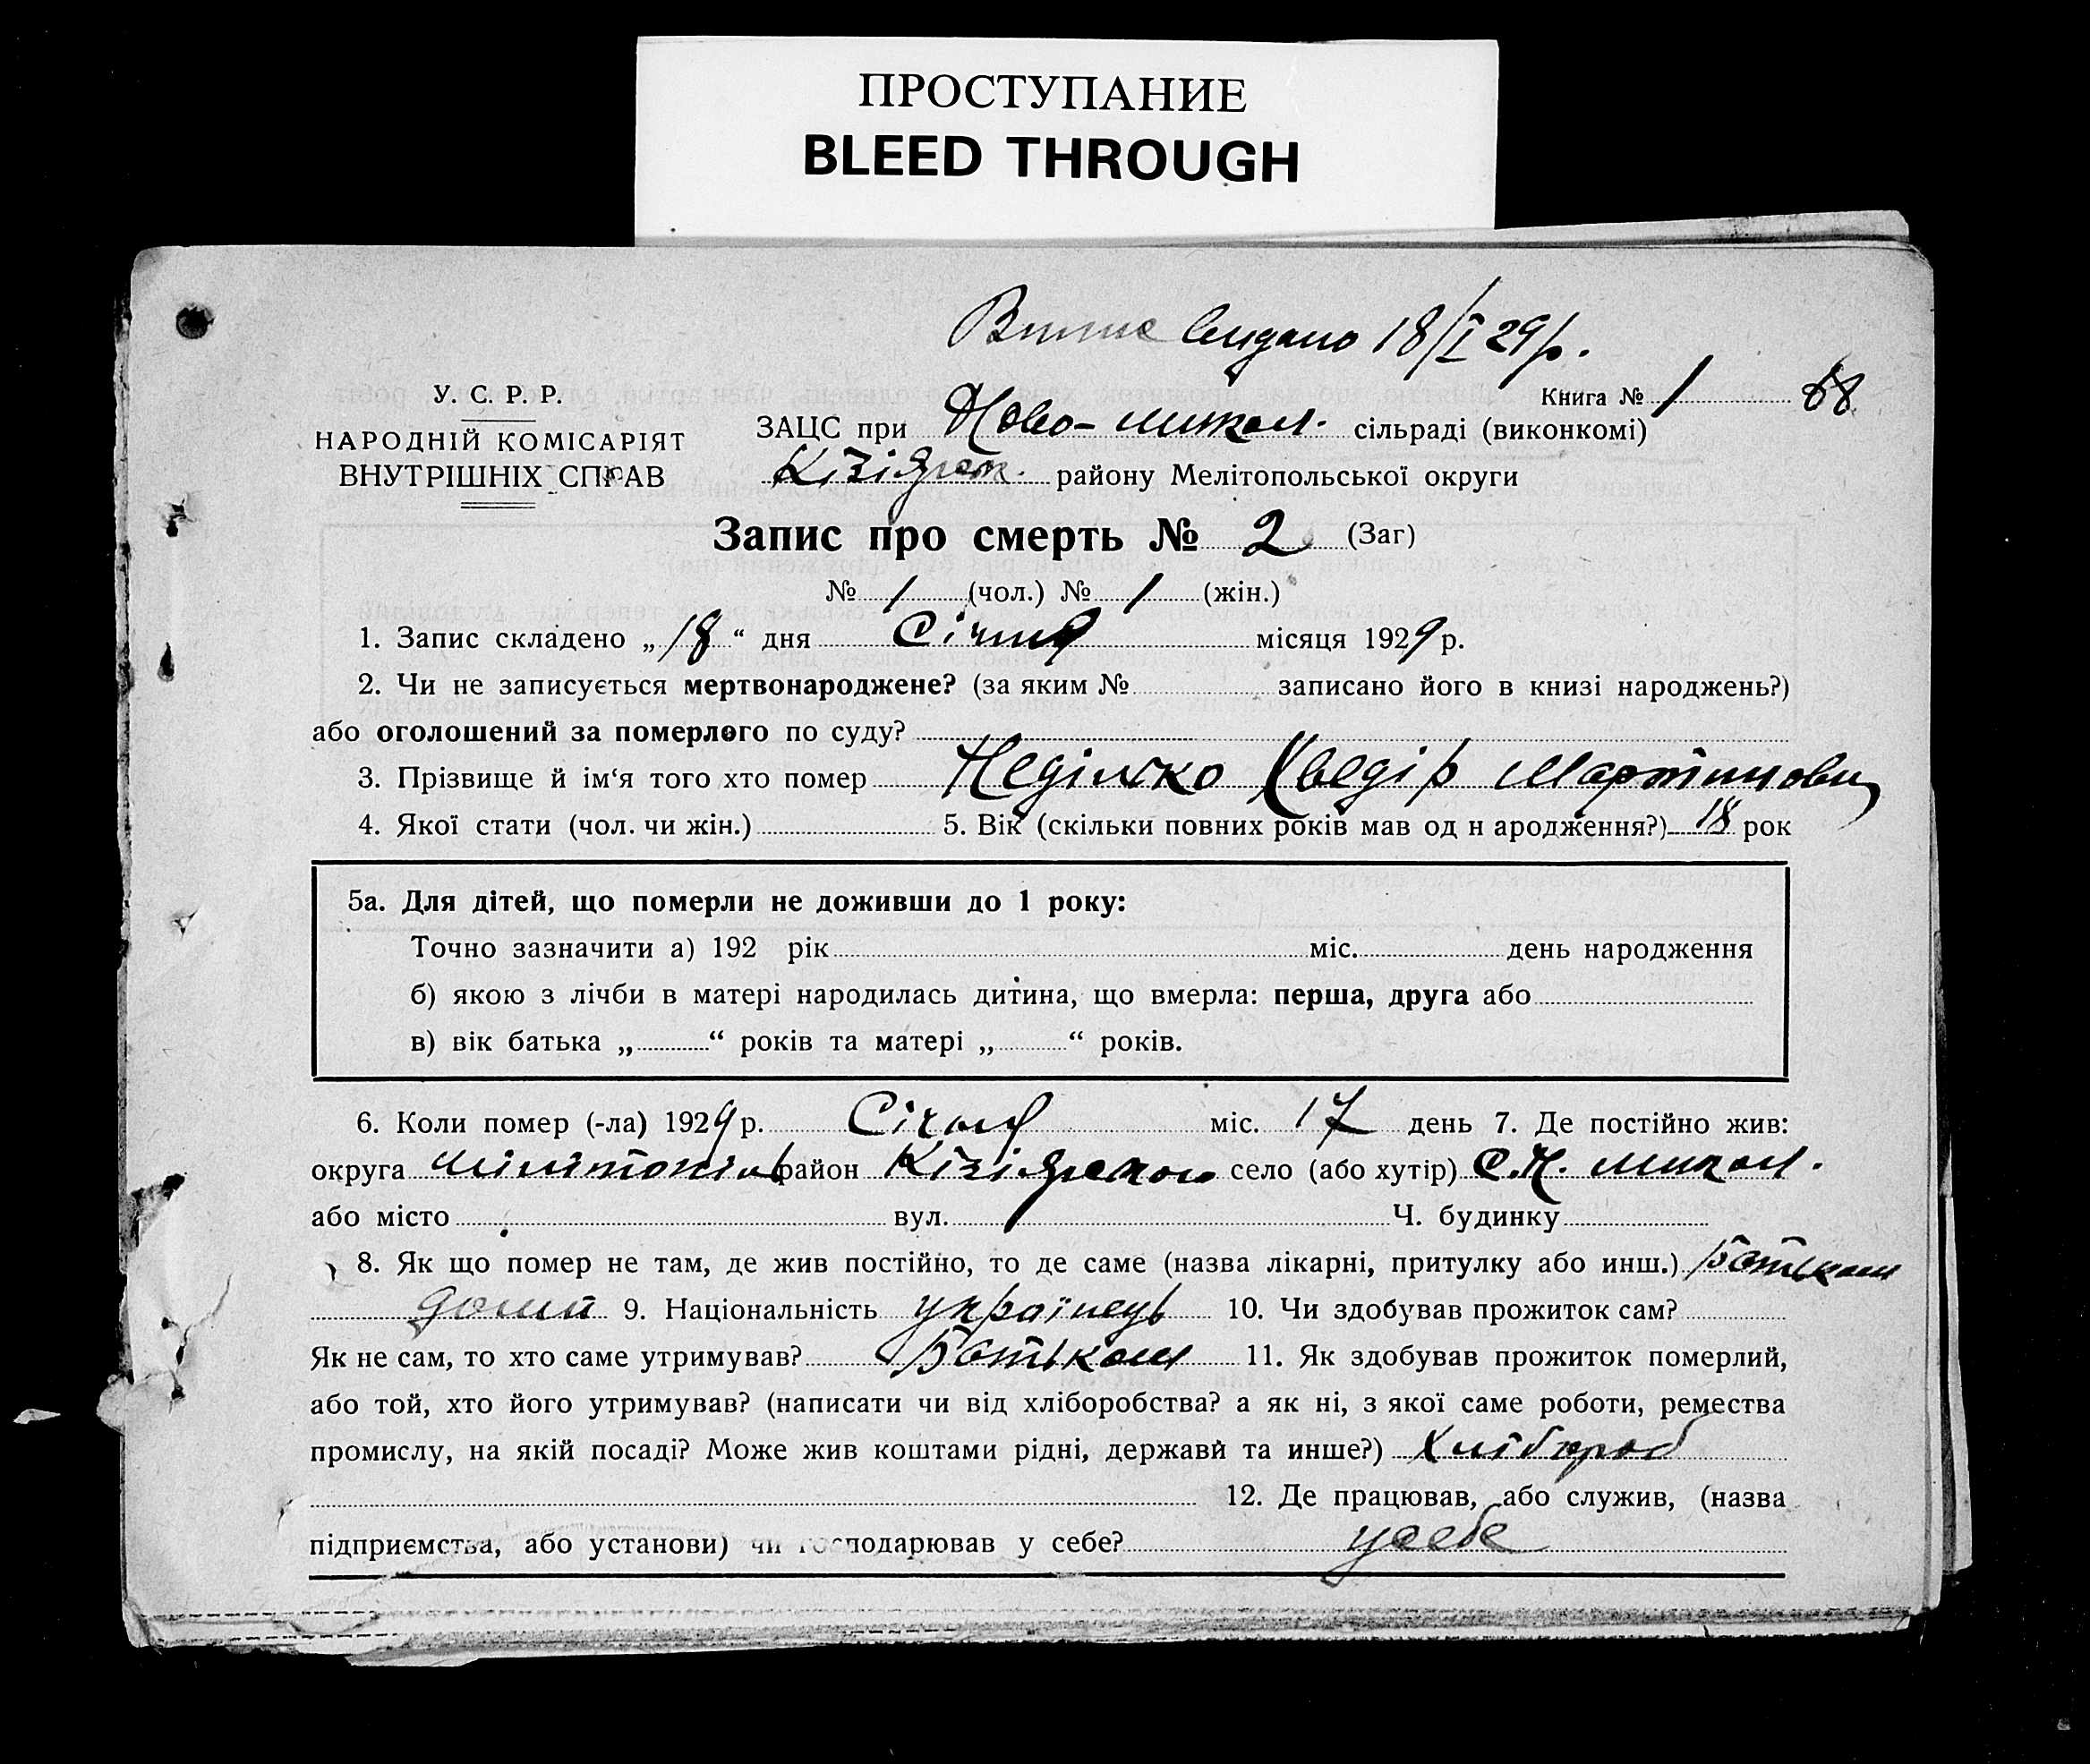 ПРОСТУПАНИЕ
BLEED THROUGH
Випис видано 18/I 29 р.
Книга № 1 68
У. С. Р. Р.
НАРОДНІЙ КОМІСАРІЯТ
ВНУТРІШНІХ СПРАВ
ЗАЦС при Ново-микол. сільраді (виконкомі)
Кізіярск. району Мелітопольської округи
Запис про смерть № 2 (Заг)
№ 1 (чол.) № 1 (жін.)
1. Запис складено „18“ дня Січня місяця 1929 р.
2. Чи не записується мертвонароджене? (за яким № записано його в книзі народжень?)
або оголошений за померлого по суду?
3. Прізвище й ім‘я того хто помер Неділько Хведір Мартинови
4. Якої стати (чол. чи жін.) 5. Вік (скільки повних років мав од н ародження?) 18 рок
5а. Для дітей, що померли не доживши до 1 року:
Точно зазначити а) 192 рік міс. день народження
б) якою з лічби в матері народилась дитина, що вмерла: перша, друга або
в) вік батька „ “ років та матері „ “ років.
6. Коли помер (-ла) 1929 р. Січня міс. 17 день 7. Де постійно жив:
округа район село (або хутір) С. Н. микол.
або місто вул. Ч. будинку
8. Як що помер не там, де жив постійно, то де саме (назва лікарні, притулку або инш.)
дома 9. Національність українець 10. Чи здобував прожиток сам?
Як не сам, то хто саме утримував? Батьком 11. Як здобував прожиток померлий,
або той, хто його утримував? (написати чи від хліборобства? а як ні, з якої саме роботи, ремества
промислу, на якій посаді? Може жив коштами рідні, держави та инше?) Хлібороб
12. Де працював, або служив, (назва
підприємства, або установи) чи господарював у себе? у себе